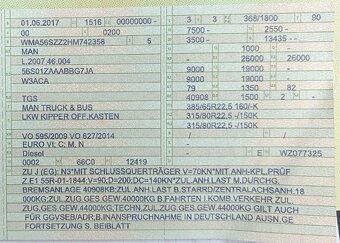 01.06.2017 1516 00000000- 3 3 368/1800 90
00 0200 7500- 2550-
WMA56SZZ2HM742358 5 3500- 13435--
MAN 1000
L.2007.46.004 - 26000 26000
56S01ZAAABBG7JA 9000 19000 -
W3ACA 9000 19000 -
79 1350 82
TGS 40908 1500 - 2
MAN TRUCK & BUS 385/65R22,5 160/-K
LKW KIPPER OFF.KASTEN 315/80R22,5 -/150K
315/80R22,5 -/150K
VO 595/2009 VO 627/2014
EURO VI; C; M, N
Diesel E WZ077325
0002 66C0 12419
ZU J (EG): N3*MIT SCHLUSSQUERTRÄGER V=70KN*MIT ANH-KPL.PRÜF
Z.E1 55R-01-1844:V=90;D=200;DC=140KN*ZUL.ANH.LAST M.DURCHG.
BREMSANLAGE 40908KB:ZUL.ANH.LAST B.STARRD/ZENTRALACHSANH.18
000KG:ZUL.ZUG GES.GEW.44000KG B.FAHRTEN I.KOMB.VERKEHR ZUL.
ZUG.GES.GEW.44000KG;TECHN.ZUL.ZUG.GES.GEW.44000KG GILT AUCH
FÜR GGVSEB/ADR;B.INANSPRUCHNAHME IN DEUTSCHLAND AUSN.GE
FORTSETZUNG S. BEIBLATT